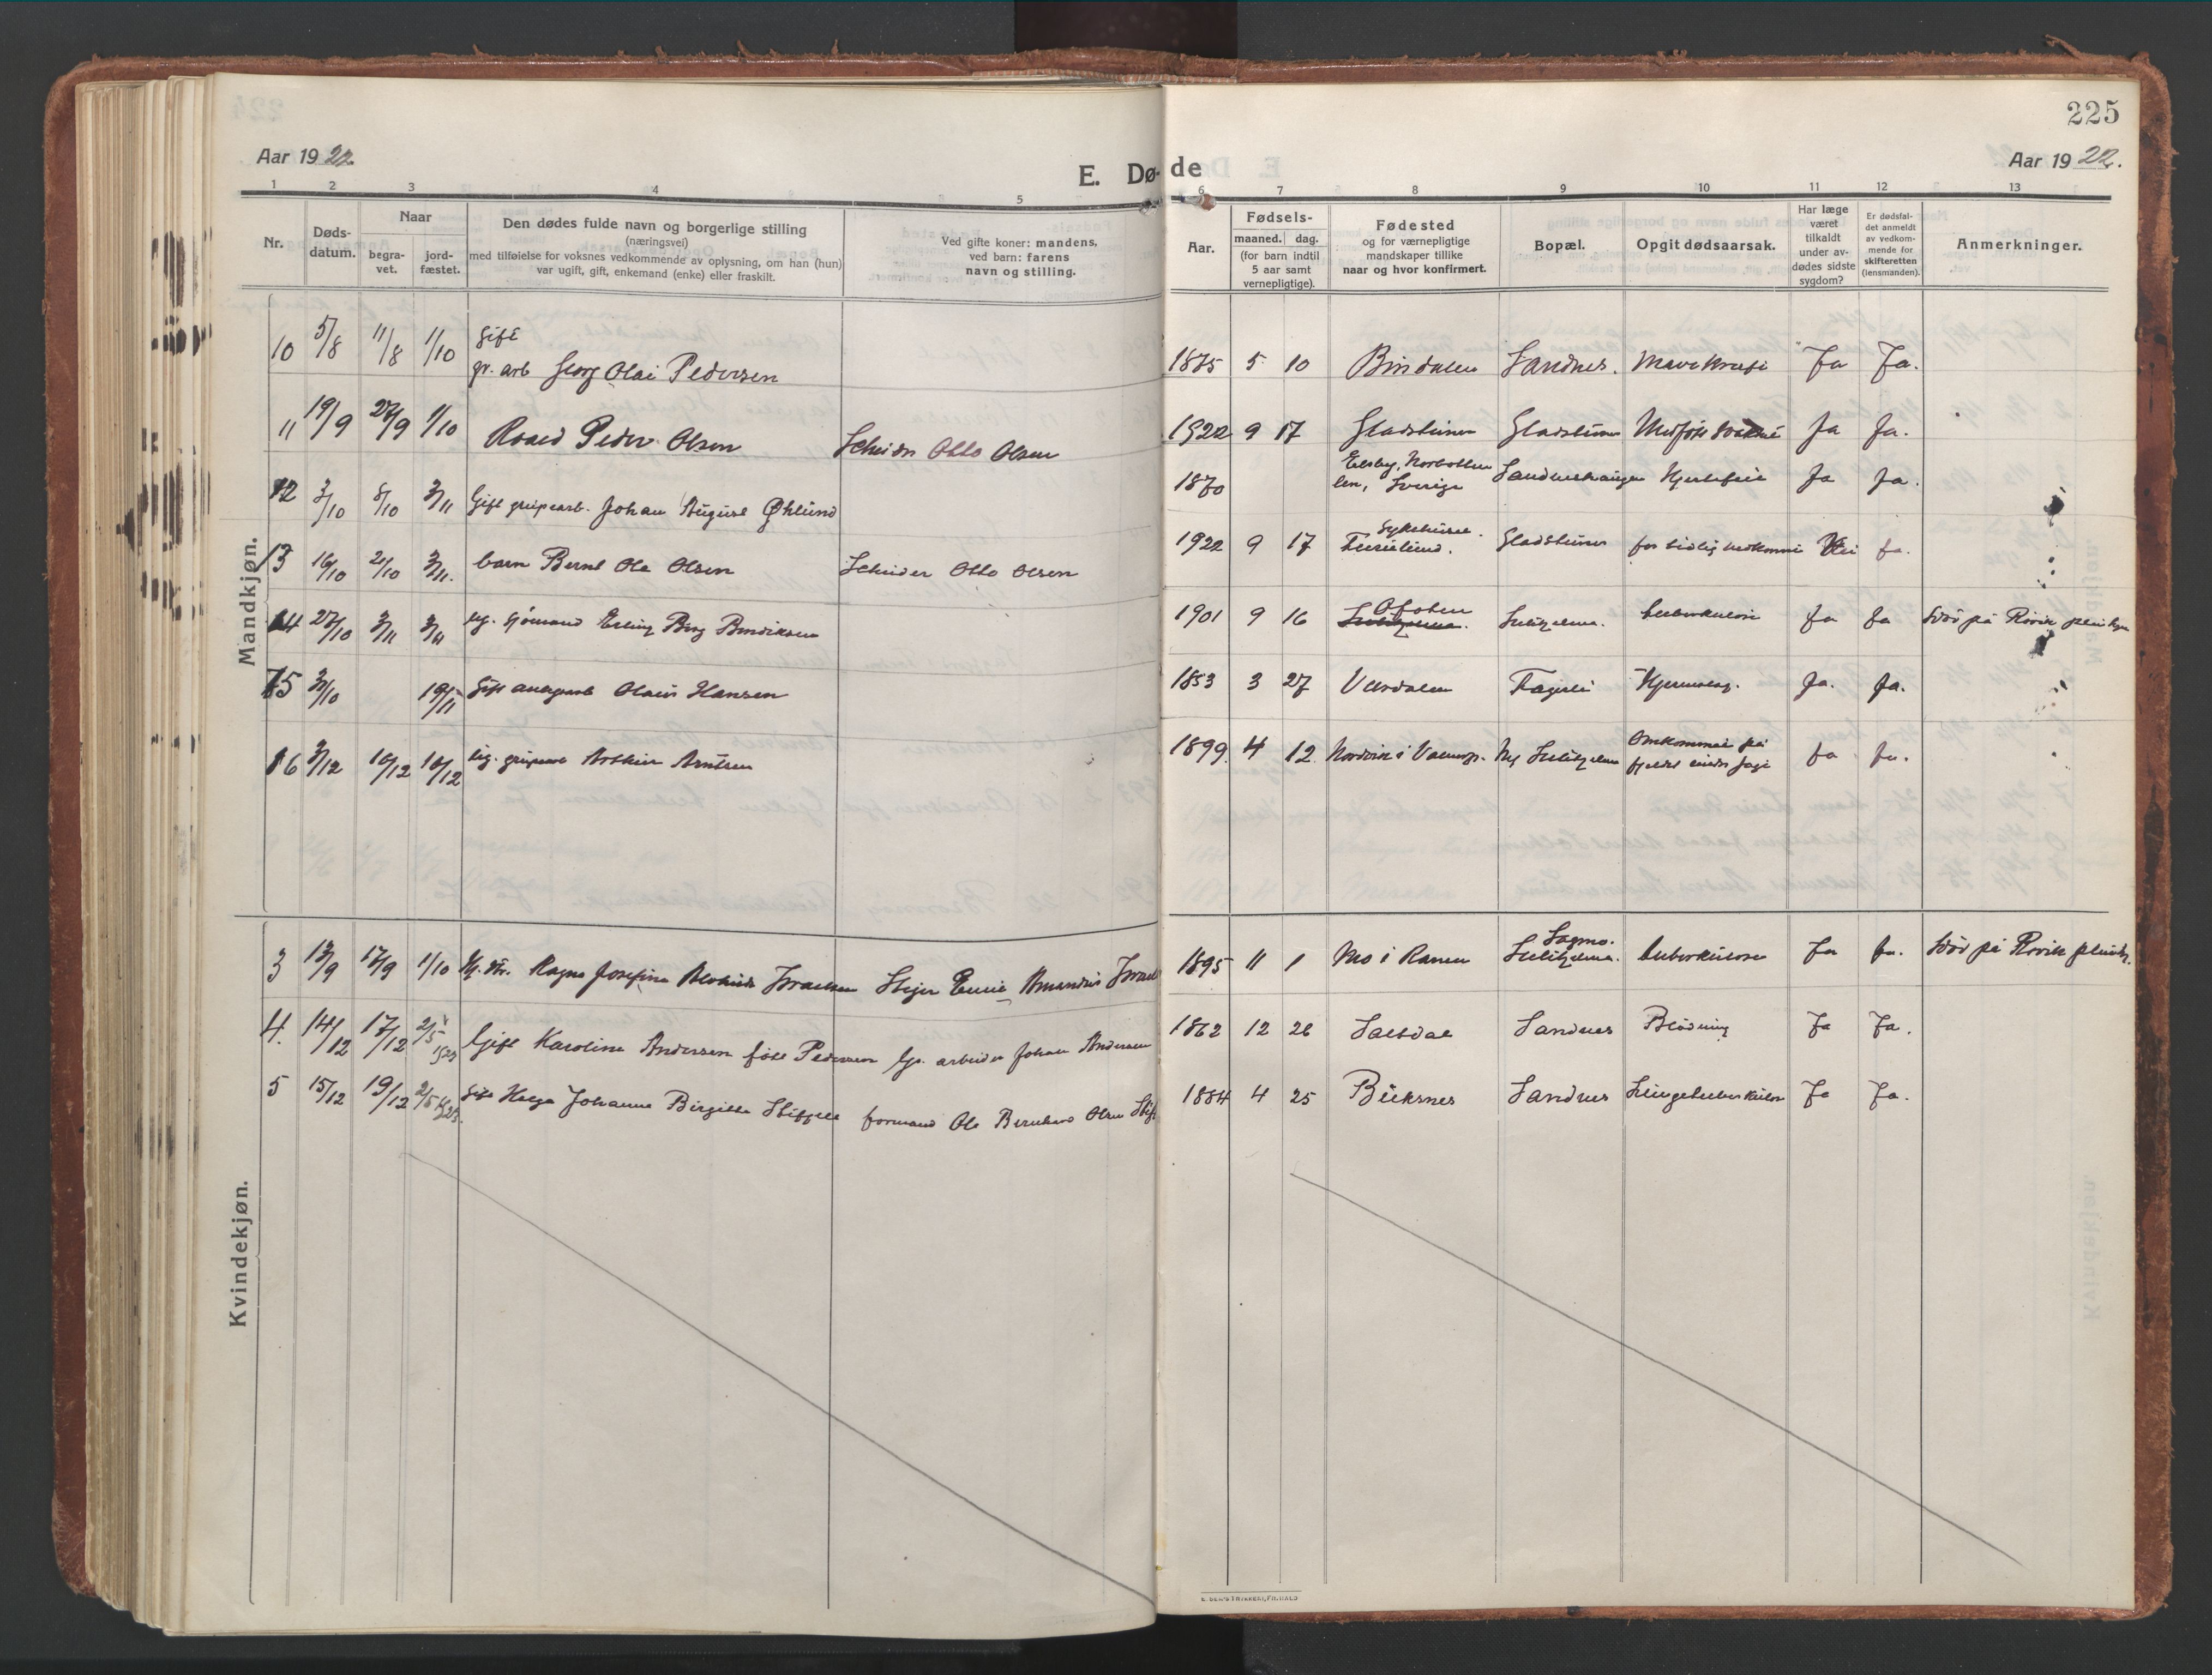 225
Aar 1922.
E. Døde
Aar 1922.
1 2 3 4 5 6 7 8 9 10 11 12 13
Nr.
Døds-
datum.
Naar
begra-
vet.
jord-
fæstet.
Den dødes fulde navn og borgerlige stilling
(næringsvei)
med tilføielse for voksnes vedkommende av oplysning, om han (hun)
var ugift, gift, enkemand (enke) eller fraskilt.
Ved gifte koner: mandens,
ved barn: farens
navn og stilling.
Aar.
Fødsels-
maaned. dag.
(for barn indtil
5 aar samt
vernepligtige).
Fødested
og for værnepligtige
mandskaper tillike
naar og hvor konfirmert.
Bopæl.
Opgit dødsaarsak.
Har læge
været
tilkaldt
under av-
dødes sidste
sygdom?
Er dødsfal-
det anmeldt
av vedkom-
mende for
skifteretten
(lensmanden).
Anmerkninger.
Mandkjøn.
10 5/8 11/8 1/10 Gift
gr. arb Georg Olai Pedersen 1875 5 10 Bindalen Sandnes. Mavekræft Ja Ja.
11 19/9 27/9 1/10 Roald Peder Olsen Otto Olsen 1922 9 17 Gladstuen Gladstuen Medfødt Ja Ja.
12 3/10 8/10 3/11 Gift grupearb. Johan August Øhlund 1870 Norbotten
len, Sverige Hjertefeil Ja Ja.
13 16/10 21/10 3/11. barn Bernt Ole Olsen Otto Olsen 1922 9 17 Sykehuset
Furulund. Gladstuen for tidlig Nei Ja.
14 27/10 3/11 3/11 ug. sjømand Erling Berg Bendiksen 1901 9 16 Ofoten
Sulitjelma. Sulitjelma. tuberkulose Ja Ja Død på Røvik pleiehjem
15 3/10 19/11 Gift Olaus Hansen 1853 3 27 Verdalen Fagerli Ja. Ja.
16 3/12 16/12 16/12 ug. gruparb Arthur Arntsen 1899. 4 12. Nordvik i Ny Sulitjelma Omkommet på
fjeldet under jagt Ja Ja.
Kvindekjøn.
3 13/9 17/9 1/10 Ragna Josefine Israelsen Amandus 1895 11 1 Mo i Ranen Sagmo.
Sulitjelma. tuberkulose Ja Ja. Død på Røvik pleiehj.
4. 14/12 17/12 2/5 1923 Gift Karoline Andersen født Pedersen Gr. arbeider Johan Andersen 1862 12 26 Saltdal Sandnes Blødning Ja Ja.
5 15/12 19/12 2/5 1923. Gift Helga Johanne Birgitte formand Ole Bernhard Olsen 1884 4 25 Buksnes Sandnes Lungetuberkulose Ja Ja.